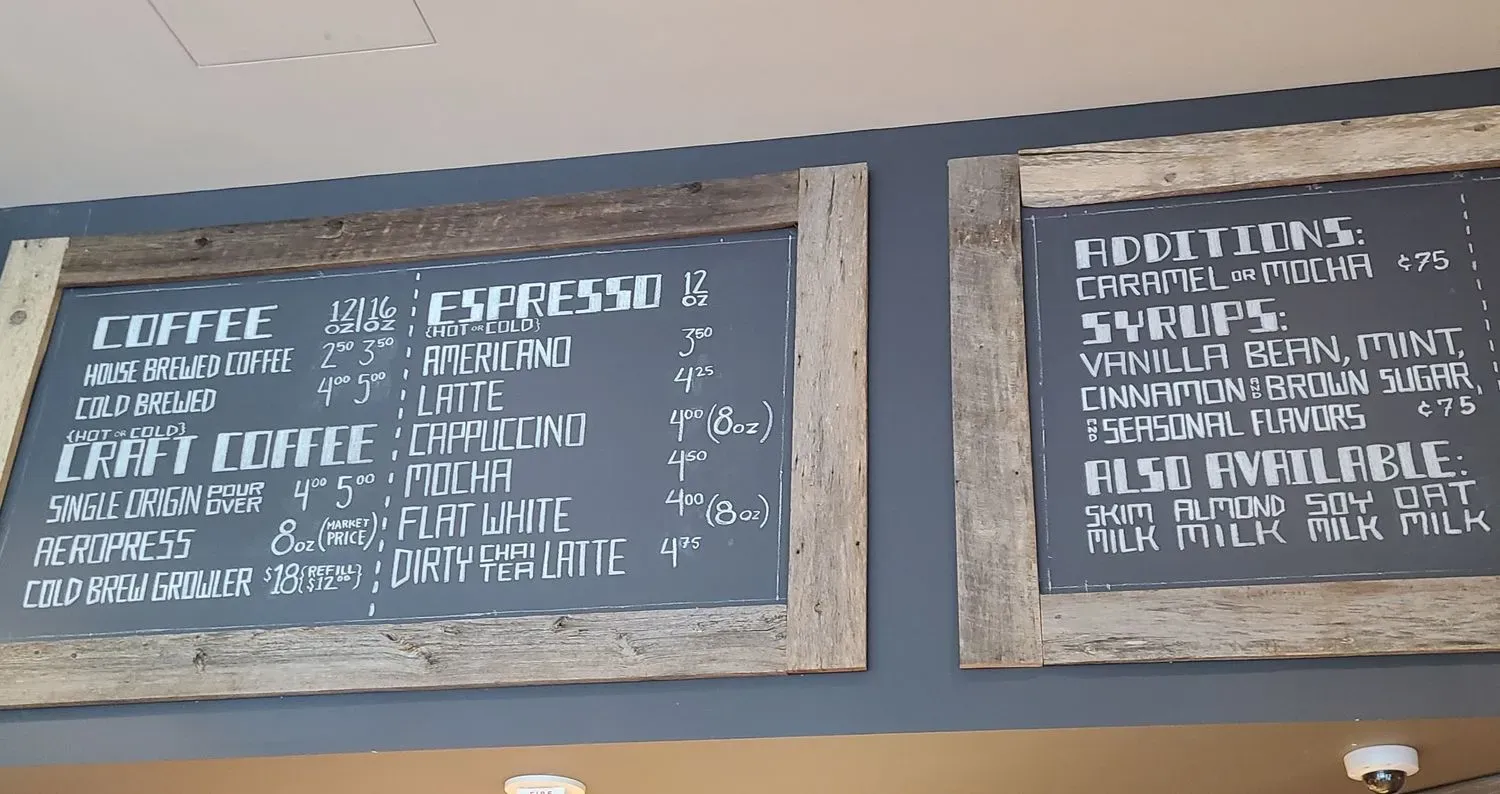 COFFEE 12 OZ | 16 OZ
HOUSE BREWED COFFEE 2⁵⁰ 3⁵⁰
COLD BREWED 4⁰⁰ 5⁰⁰
{HOT OR COLD}
CRAFT COFFEE
SINGLE ORIGIN POUR OVER 4⁰⁰ 5⁰⁰
AEROPRESS 8oz (MARKET PRICE)
COLD BREW GROWLER $18 {REFILL $12⁰⁰}
ESPRESSO 12 OZ
{HOT OR COLD}
AMERICANO 3⁵⁰
LATTE 4²⁵
CAPPUCCINO 4⁰⁰ (8oz)
MOCHA 4⁵⁰
FLAT WHITE 4⁰⁰ (8oz)
DIRTY CHAI TEA LATTE 4⁷⁵
ADDITIONS:
CARAMEL OR MOCHA ¢75
SYRUPS:
VANILLA BEAN, MINT,
CINNAMON AND BROWN SUGAR,
AND SEASONAL FLAVORS ¢75
ALSO AVAILABLE:
SKIM ALMOND SOY OAT
MILK MILK MILK MILK
FIRE